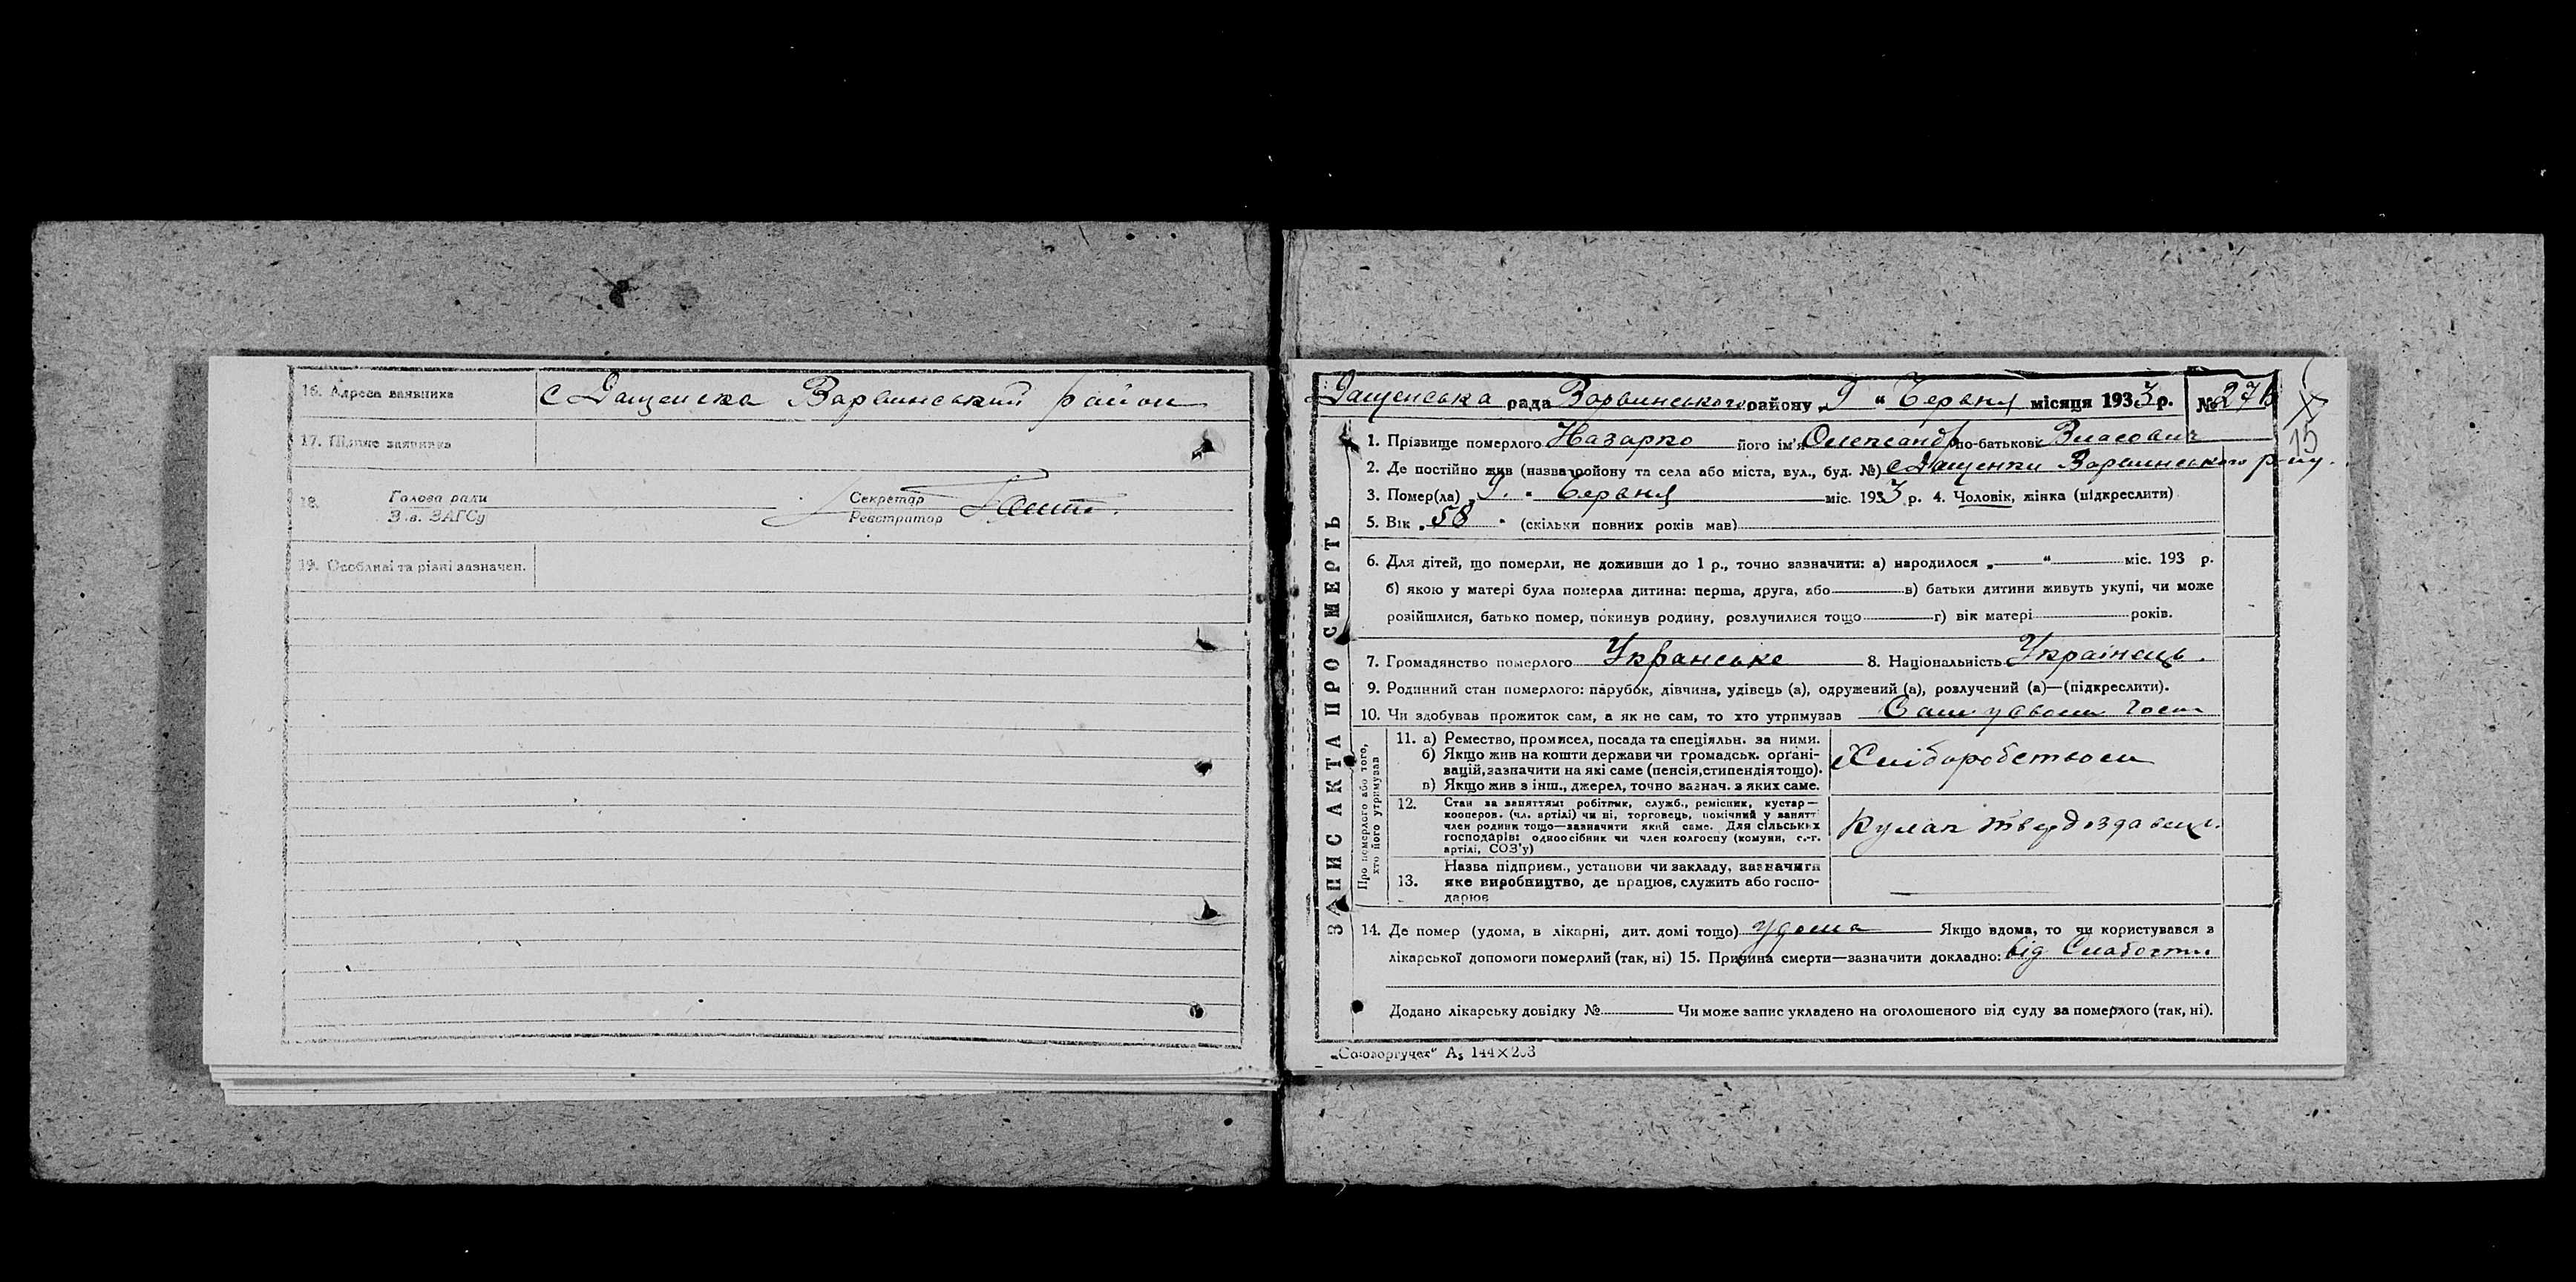 16. Адреса заявника С Дащенка Варвинский район
17. Підпис заявника
18. Голова ради Секретар
Зав. ЗАГСу Реєстратор
19. Особливі та різні зазначен.
Дащенська рада Варвинського району „ 9 “ Червня місяця 1933 р. № 27
ЗАПИС АКТА ПРО СМЕРТЬ
1. Прізвище померлого Назарко його ім'я Олександр по-батькові Власович
2. Де постійно жив (назва району та села або міста, вул., буд. №) с Дащенки Варвинського р-ну.
15
3. Помер(ла) „ 9. “ Червня міс. 1933 р. 4. Чоловік, жінка (підкреслити)
5. Вік „ 58 “ (скільки повних років мав)
6. Для дітей, що померли, не доживши до 1 р., точно зазначити: а) народилося „ “ міс. 193 р.
б) якою у матері була померла дитина: перша, друга, або в) батьки дитини живуть укупі, чи може
розійшлися, батько помер, покинув родину, розлучилися тощо г) вік матері років.
7. Громадянство померлого Укранське 8. Національність Українець.
9. Родинний стан померлого: парубок, дівчина, удівець (а), одружений (а), розлучений (а)—(підкреслити).
10. Чи здобував прожиток сам, а як не сам, то хто утримував Сам у своем Госп
Про померлого або того,
хто його утримував
11. а) Ремество, промисел, посада та спеціяльн. за ними.
б) Якщо жив на кошти держави чи громадськ. орґані-
зацій, зазначити на які саме (пенсія, стипендія тощо).
в) Якщо жив з інш., джерел, точно зазнач. з яких саме.
Хліборобством
12. Стан за заняттям: робітник, служб., ремісник, кустар—
кооперов. (чл. артілі) чи ні, торговець, помічний у занятті
член родини тощо—зазначити який саме. Для сільських
господарів: одноосібник чи член колгоспу (комуни, с.-г.
артілі, СОЗ'у)
Кулак твердоздавець.
13. Назва підприєм., установи чи закладу, зазначити
яке виробництво, де працює, служить або госпо-
дарює
14. Де помер (удома, в лікарні, дит. домі тощо) удома Якщо вдома, то чи користувався з
лікарської допомоги померлий (так, ні) 15. Причина смерти—зазначити докладно: від Слабости
Додано лікарську довідку № Чи може запис укладено на оголошеного від суду за померлого (так, ні).
„Союзоргучет“ А₅ 144×203